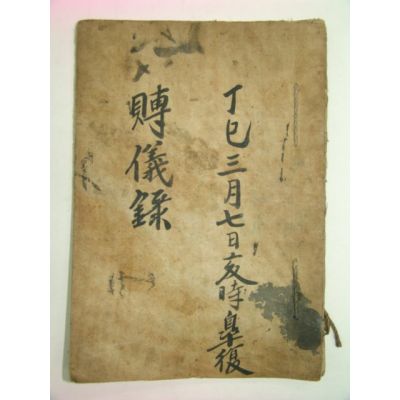 丁巳三月七日亥時皐復
賻儀錄